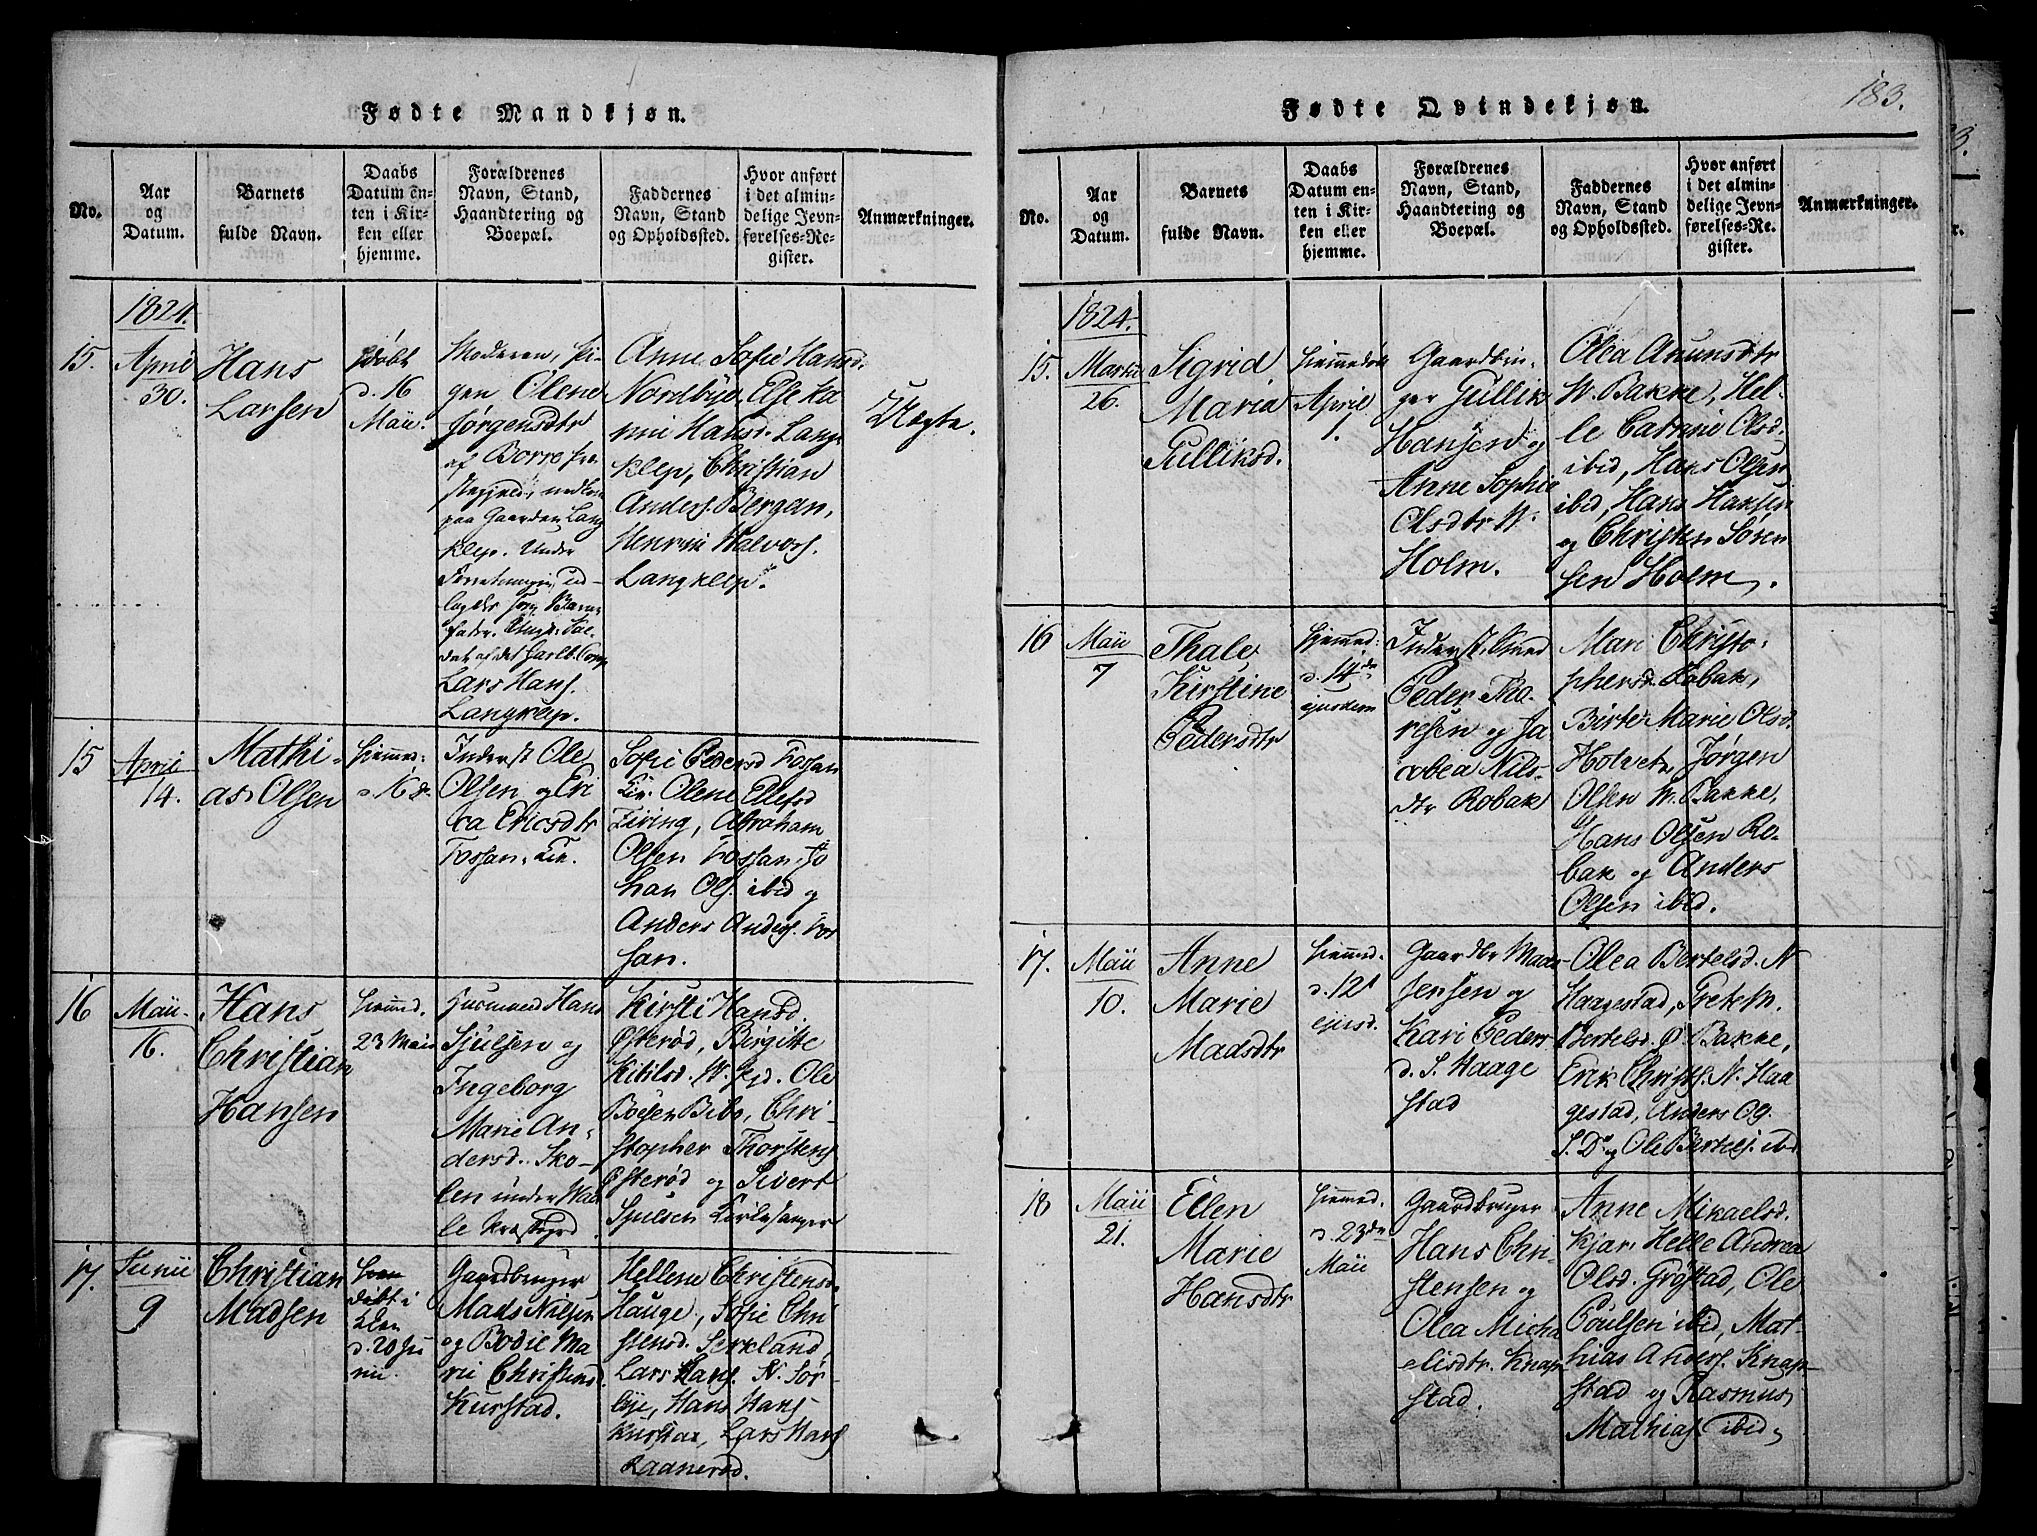 183.
Fødte Mandkjøn.
No.
Aar
og
Datum.
Barnets
fulde Navn.
Daabs
Datum en-
ten i Kir-
ken eller
hjemme.
Forældrenes
Navn, Stand,
Haandtering og
Boepæl.
Faddernes
Navn, Stand
og Opholdssted.
Hvor anført
i det almin-
delige Jevn-
førelses-Re-
gister.
Anmærkninger.
1824.
15.
April
30.
Hans
Larsen
døbt
d. 16
Maii.
Moderen, Pi-
gen Olene
Jørgensdtr
af Borre
paa Gaarden Lang
klep. Under
Lars Hans.
Langklep.
Anne Sofie Hansd.
Nordbye, Else Ka
rine Hansd. Lang
klep, Christian
Anders. Bergan,
Henrik Halvors.
Langklep.
Uægte.
15
April
14.
Mathi-
as Olsen
hiemmed:
d. 16 d.
Inderst Ole
Olsen og Eri
ca Ericsdtr
Fossan. Eie.
Sofie Pedersd Fossan
Eie. Olene Ellefsd
Living, Abraham
Olsen Fossan, Jo
han Ols. ibid og
Anders Anders. Fos
san.
16
Maii
16.
Hans
Christian
Hansen
hiemmed.
23 Maii
Husmand Hans
Sjulsen og
Ingeborg
Marie An-
dersd. Sko-
len under Waa
le Præstgrd.
Kirsti Hansd.
Østerød, Birgitte
Kittilsd. W. Kjd. Ole
Boesen Bibo, Chri-
stopher Thorstens
Østerød og Sivert
Sjulsen Kirkesanger
17.
Junii
9
Christian
Madsen
døbt i
Kken
d. 20 Ju
nii.
Gaardbruger
Mads Nilsen
og Bodil Ma
rie Christensd.
Kurstad.
Hellene Christensd.
Hauge, Sofie Chri
stensd. Serkland,
Lars Hans. N. Sør-
bye, Hans Hans.
Kurstad, Lars Hans
Laanerød.
Fødte Qvindekjøn.
No.
Aar
og
Datum.
Barnets
fulde Navn.
Daabs
Datum en-
ten i Kir-
ken eller
hjemme.
Forældrenes
Navn, Stand,
Haandtering og
Boepæl.
Faddernes
Navn, Stand
og Opholdssted.
Hvor anført
i det almin-
delige Jevn-
førelses-Re-
gister.
Anmærkninger.
1824.
15.
Martii
26.
Sigrid
Maria
Gulliksd.
hiemmedøbt
April
1.
Gaardbru-
ger Gullik
Hansen og
Anne Sophie
Olsdtr W.
Holm.
Olea Amunsdtr
W. Bakke, Hel-
le Catrine Olsd.
ibid, Hans Olsen
ibid, Hans Hansen
og Christen Søren
sen Holm.
16
Maii
7
Thale
Kirstine
Pedersdtr
hiemmed:
d. 14de
ejusdem
Inderst, Smed
Peder Tho-
resen og Ja
cobea Nils-
dtr Robak
Mari Christo-
phersd. Robak,
Birte Marie Olsd.
Holvete, Jørgen
Olsen W. Bakke,
Hans Olsen Ro-
bak og Anders
Olsen ibid.
17.
Maii
10.
Anne
Marie
Madsdtr
hiemmed.
d. 12t
ejusd.
Gaardbr Mads
Jensen og
Kari Peders
d. S. Haage
stad
Olea Bertelsd. N
Haagestad, Grete M.
Bertelsd. Ø. Bakke,
Erik Christs. N. Haa
gestad, Anders Ols.
S. Do og Ole Bertels. ibid
18
Maii
21.
Ellen
Marie
Hansdtr
hiemmed.
d. 23de
Maii
Gaardbruger
Hans Chri-
stensen og
Olea Micha
elisdtr. Knap
stad.
Anne Mikaelsd.
Kjær, Helle Andrea
Olsd. Grøstad, Ole
Poulsen ibid, Mat-
hias Anders. Knap-
stad og Rasmus
Mathias. ibid